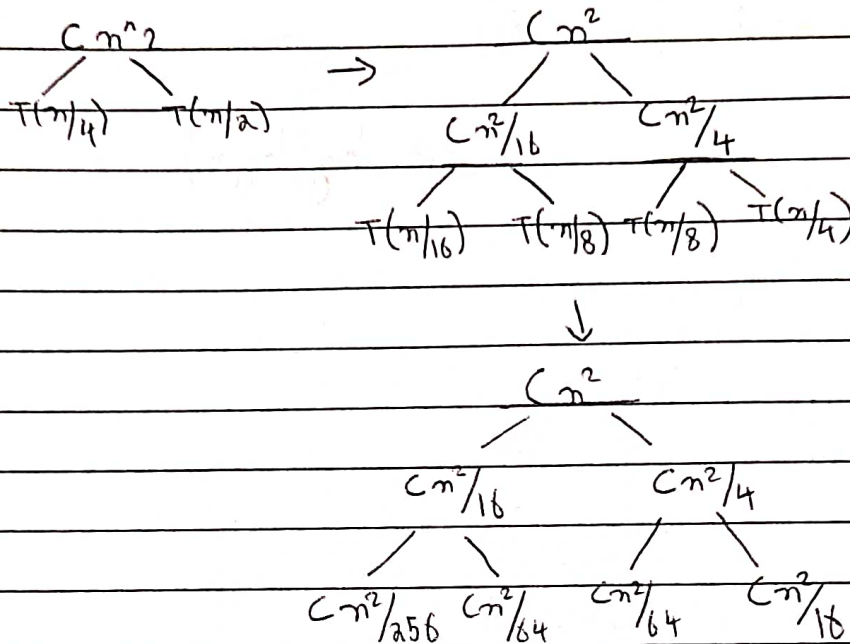 Cn^2 → Cn²
T(n/4) T(n/2) Cn²/16 Cn²/4
T(n/16) T(n/8) T(n/8) T(n/4)
↓
Cn²
Cn²/16 Cn²/4
Cn²/256 Cn²/64 Cn²/64 Cn²/16